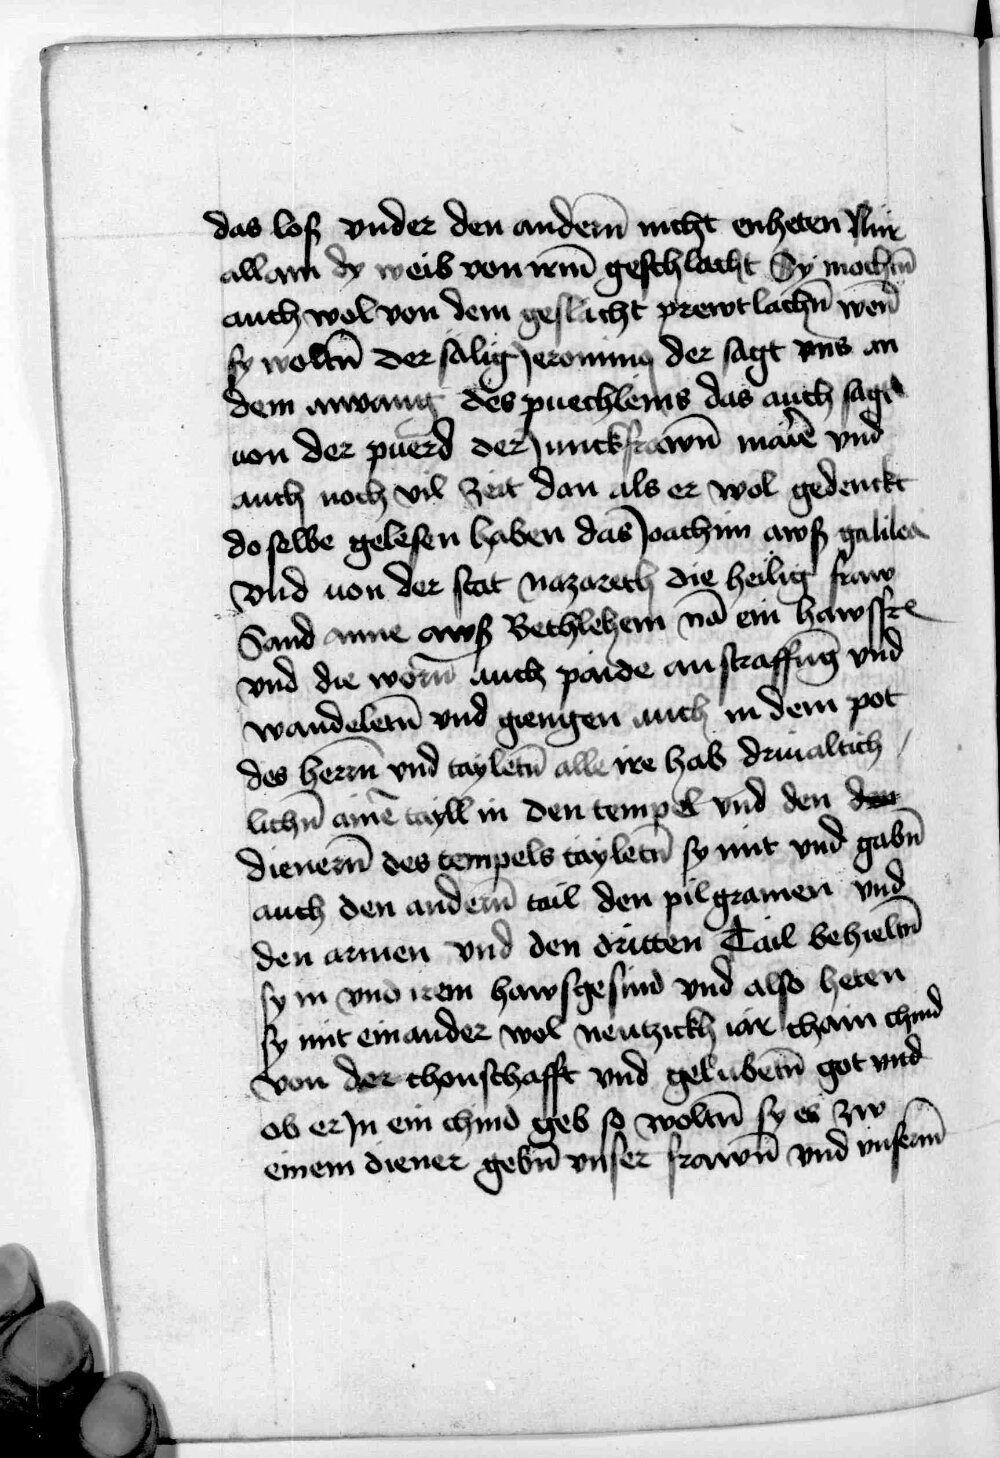 das loß vnder den andern̄ nicht enheten Nur
allain dy weib von irm̄ geschlacht Sy mochtn̄
auch wol von dem geslacht prewtlachn̄ wen̄
sy woltn̄ Der sälig Jeronimus der sagt vns an
dem anvang des puechleins das auch sagt
von der puerd der Junckfrawn̄ mar̄ie vnd
auch noch vil zeit dan als er wol gedenckt
do selbe gelesen haben das Joachim awß galilea
vnd von der stat nazareth die heilig fraw
Sand anne awß Bethlehem nā ein hawsfr
vnd die worn̄ auch paide an straffūg vnd
wandeletn̄ vnd giengen auch in dem pot
des herrn̄ vnd tayletn̄ alle ire hab driualtich
lichn̄ ainē tayll in den tempel vnd den den
dienern̄ des tempels tayletn̄ sy mit vnd gabn̄
auch den andern̄ tail den pilgramen vnd
den armen vnd den dritten Tail behieltn̄
sy in vnd irem hawsgesind vnd also heten
sy mit einander wol neutzickh iar chain chind
von der chonschafft vnd gelubetn̄ got vnd
ob er Jn ein chind geb so woltn̄ sy es zw
einem diener gebn̄ vnser frawn̄ vnd vnserm̄